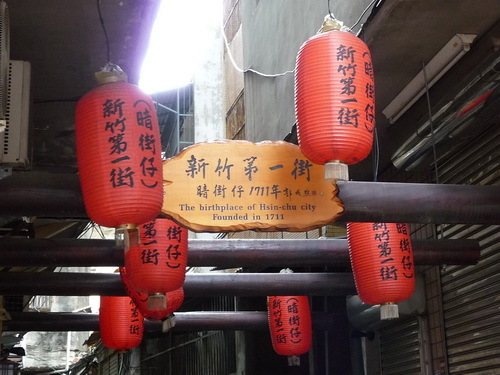 新竹第一街
暗街仔 1711年
The birthplace of Hsin-chu city
Founded in 1711
新竹第一街
(暗街仔)
新竹第一街
(暗街仔)
第一街
街仔)
新竹第一街
暗街仔)
新竹第一街
(暗街仔)